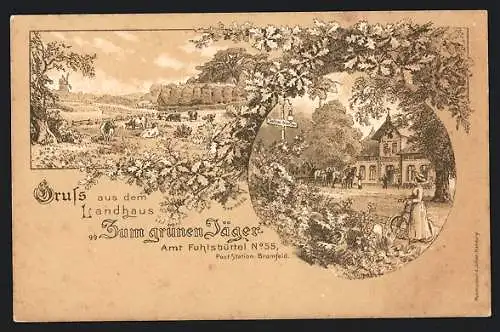 Gruß aus dem
Landhaus
„Zum grünen Jäger.
Amt Fuhlsbüttel No 55,
Post-Station: Bramfeld.